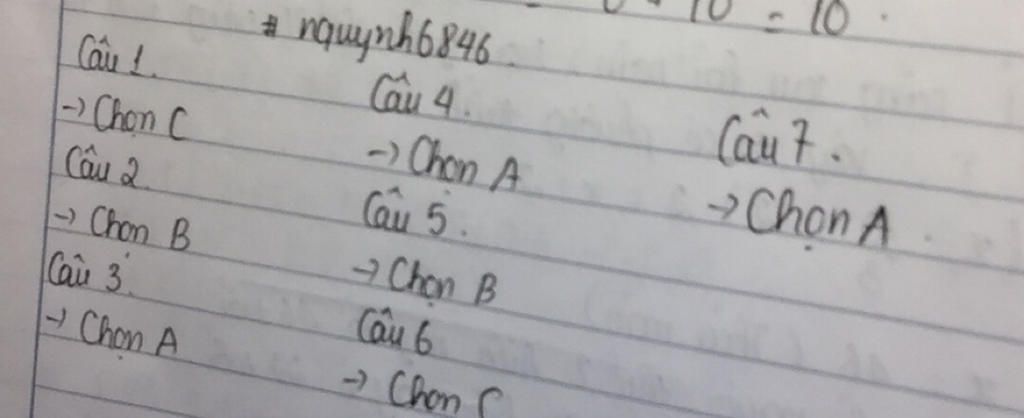 = 10.
# nquynh6846.
Câu 1.
→ Chọn C
Câu 2
→ Chọn B
Câu 3.
→ Chọn A
Câu 4.
→ Chọn A
Câu 5.
→ Chọn B
Câu 6
→ Chọn C
Câu 7.
→ Chọn A.